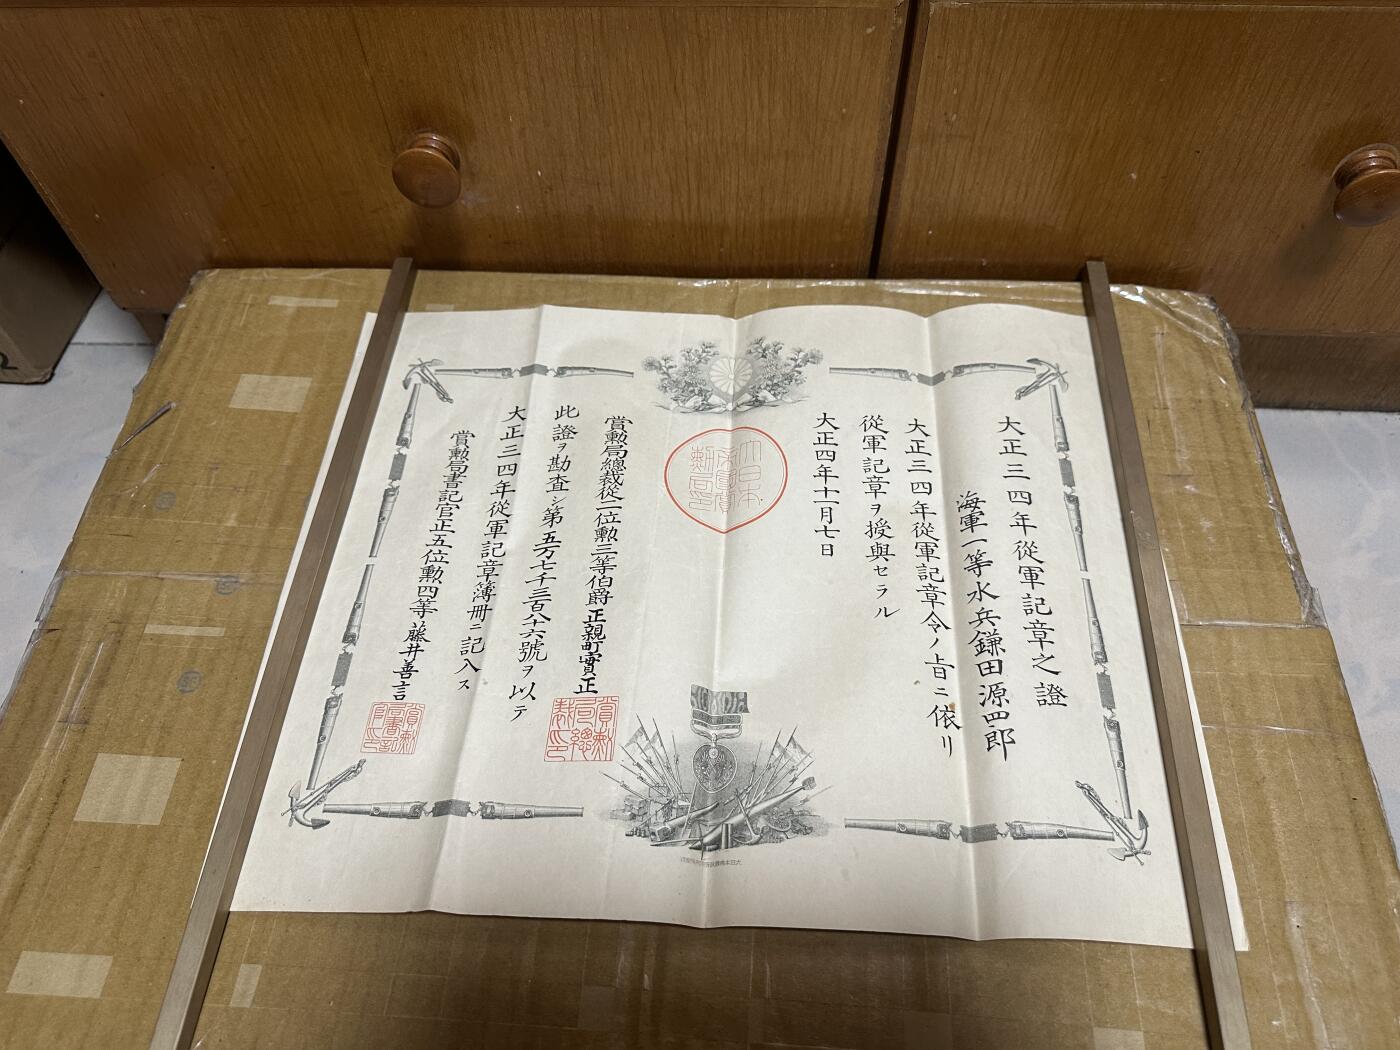 大正三四年從軍記章之證
海軍一等水兵鎌田源四郎
大正三四年從軍記章令ノ旨ニ依リ
從軍記章ヲ授與セラル
大正四年十一月七日
大日本帝國賞勲局印
賞勲局總裁從二位勲三等伯爵正親町實正
賞勲局總裁印
此證ヲ勘査シ第五万七千三百八十六號ヲ以テ
大正三四年從軍記章簿冊ニ記入ス
賞勲局書記官正五位勲四等藤井善言
賞勲局書記官印